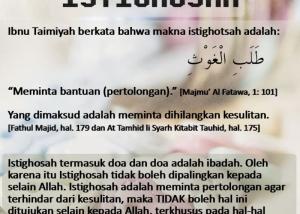 ISTIGHOSAH
Ibnu Taimiyah berkata bahwa makna istighotsah adalah:
طَلَبِ الْغَوْثِ
“Meminta bantuan (pertolongan).” [Majmu’ Al Fatawa, 1: 101]
Yang dimaksud adalah meminta dihilangkan kesulitan.
[Fathul Majid, hal. 179 dan At Tamhid li Syarh Kitabit Tauhid, hal. 175]
Istighosah termasuk doa dan doa adalah ibadah. Oleh
karena itu Istighosah tidak boleh dipalingkan kepada
selain Allah. Istighosah adalah meminta pertolongan agar
terhindar dari kesulitan, maka TIDAK boleh hal ini
ditujukan selain kepada Allah, terkhusus pada hal-hal